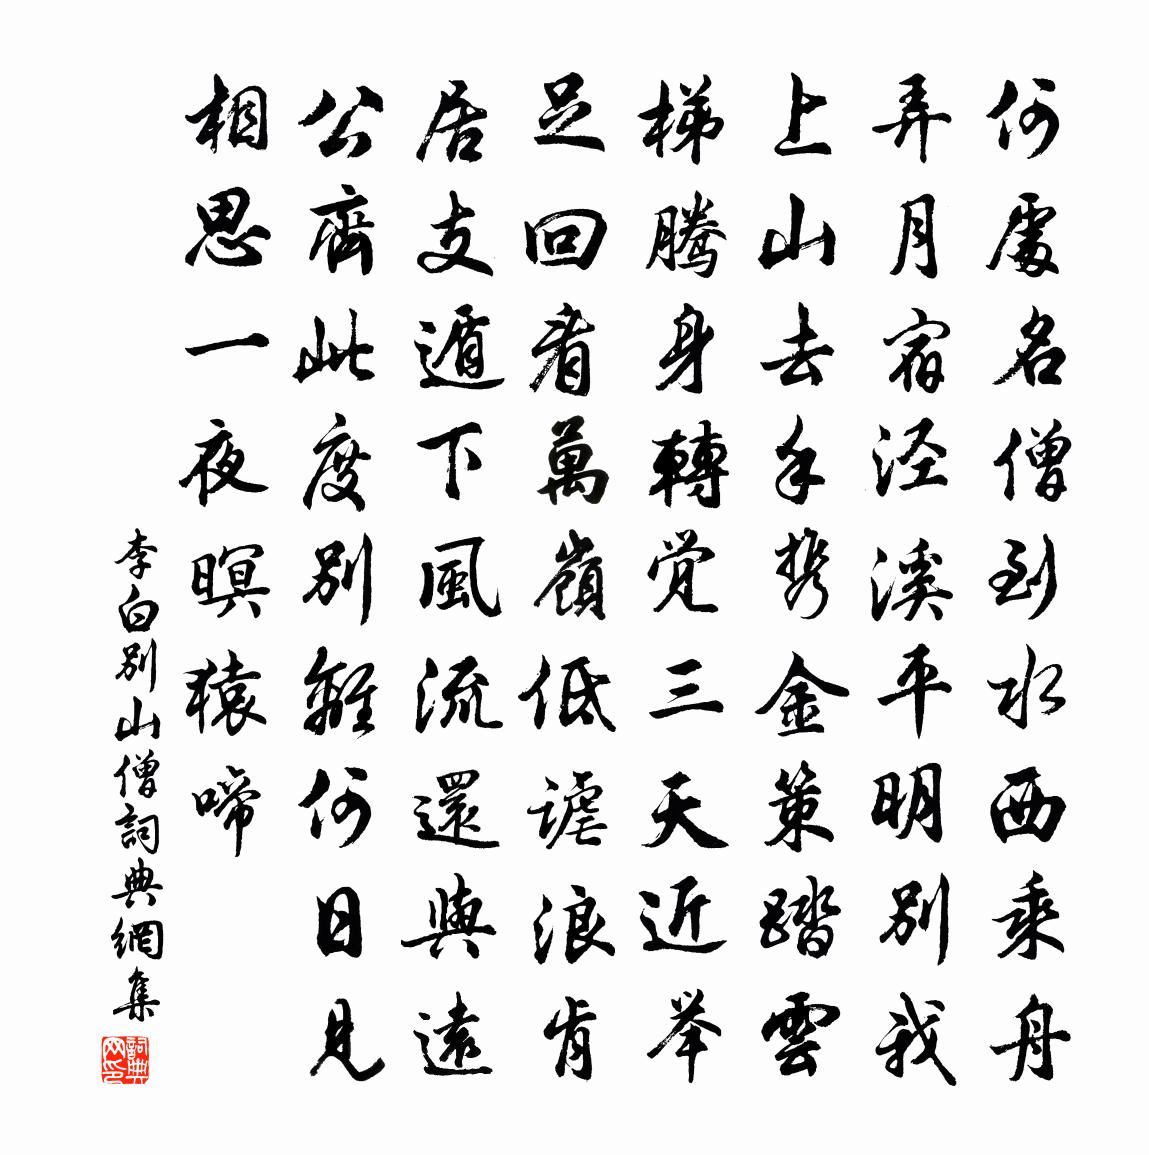 何處名僧到水西乘舟
弄月宿涇溪平明別我
上山去手携金策踏雲
梯騰身轉覚三天近举
足回看萬嶺低謔浪肯
居支遁下風流還與遠
公齊此度別離何日見
相思一夜暝猿啼
李白別山僧詞典網集
詞典
网印